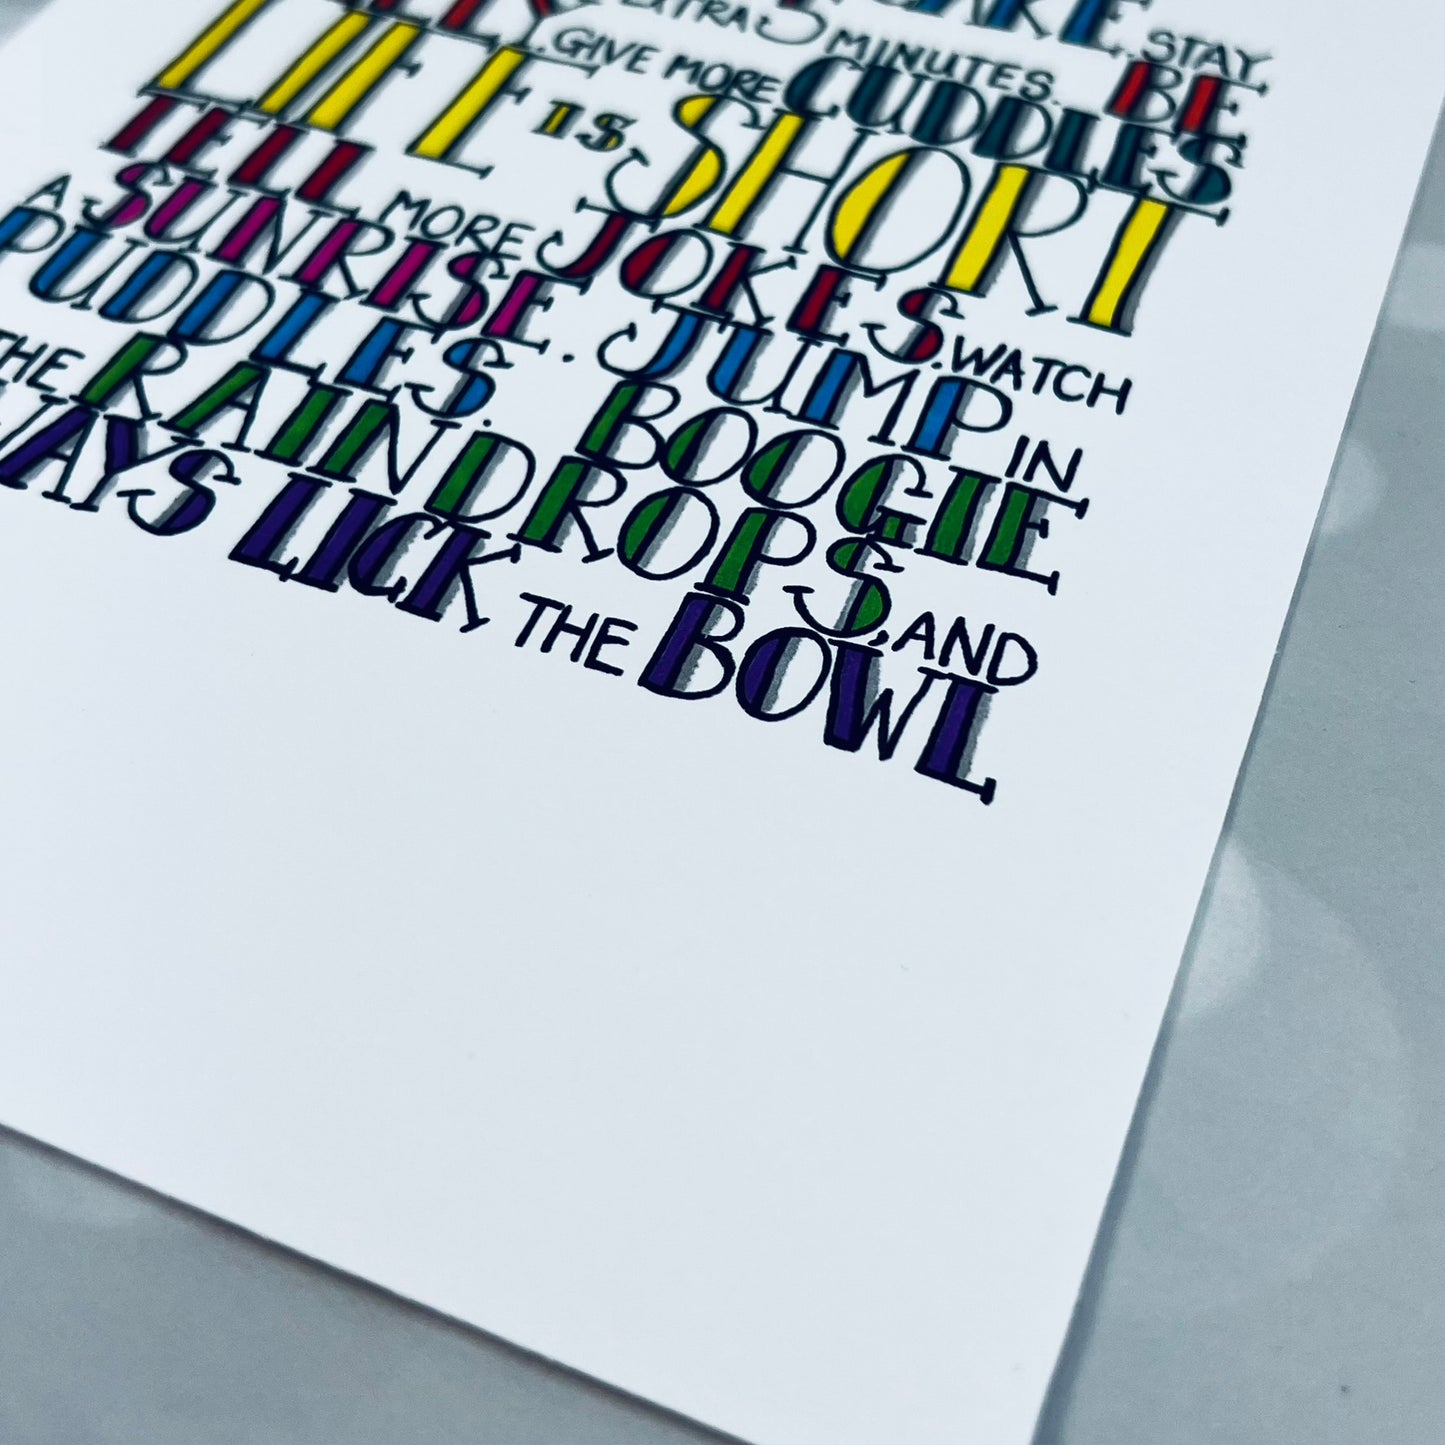 CAKE. STAY
EXTRA 5 MINUTES. BE
GIVE MORE CUDDLES
LIFE IS SHORT
TELL MORE JOKES. WATCH
A SUNRISE. JUMP IN
PUDDLES. BOOGIE
THE RAINDROPS, AND
LICK THE BOWL